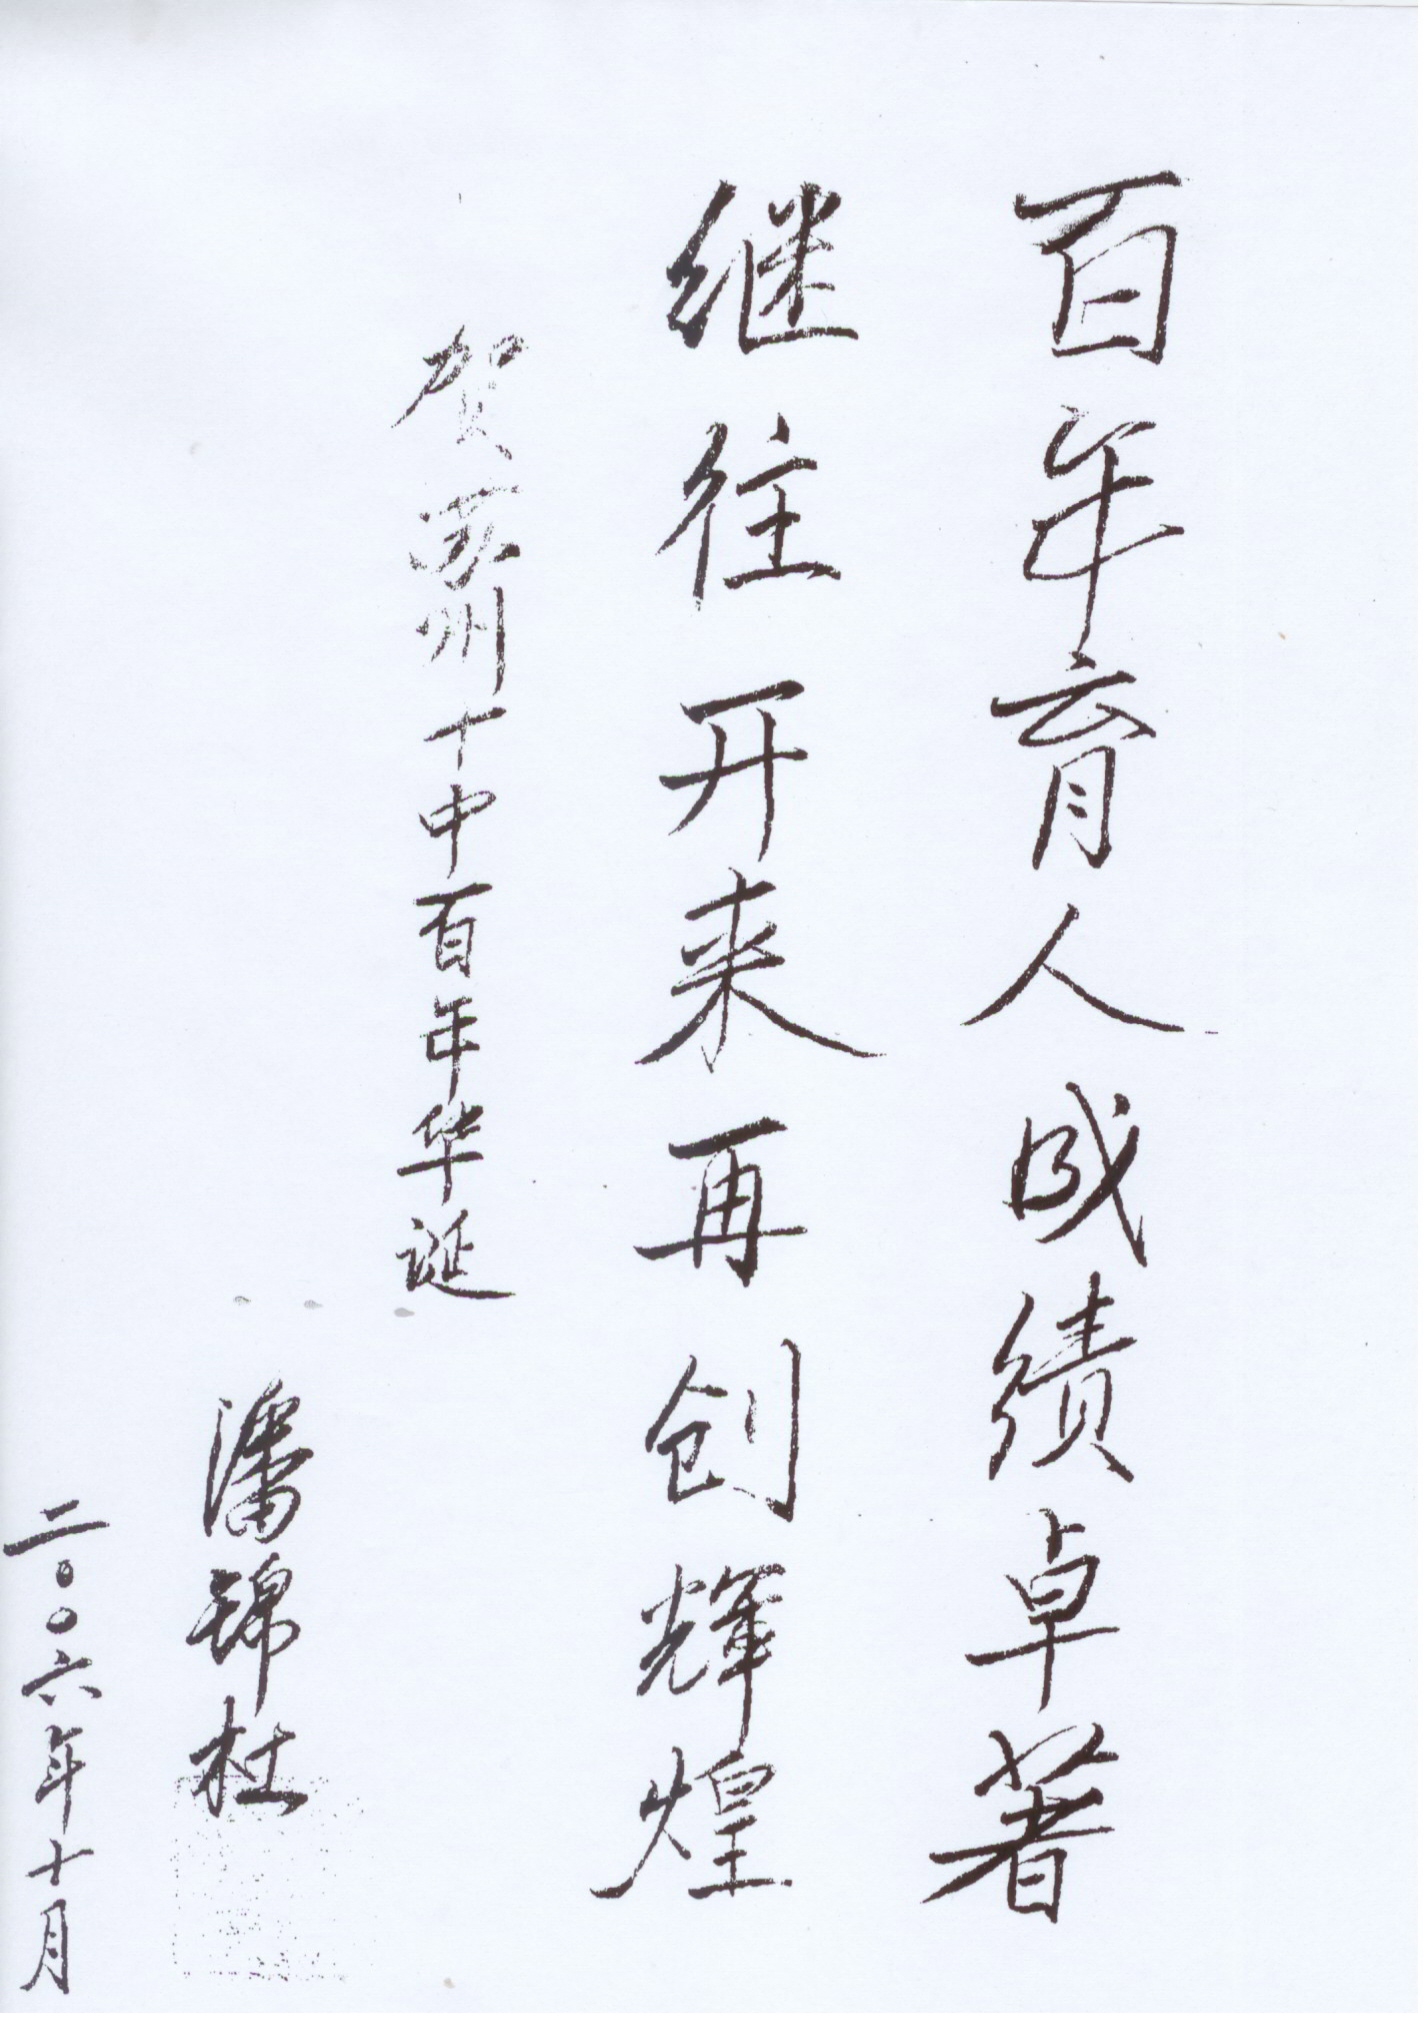 百年育人成绩卓著
继往开来再创辉煌
贺苏州十中百年华诞
潘锦杜
二〇〇六年十月